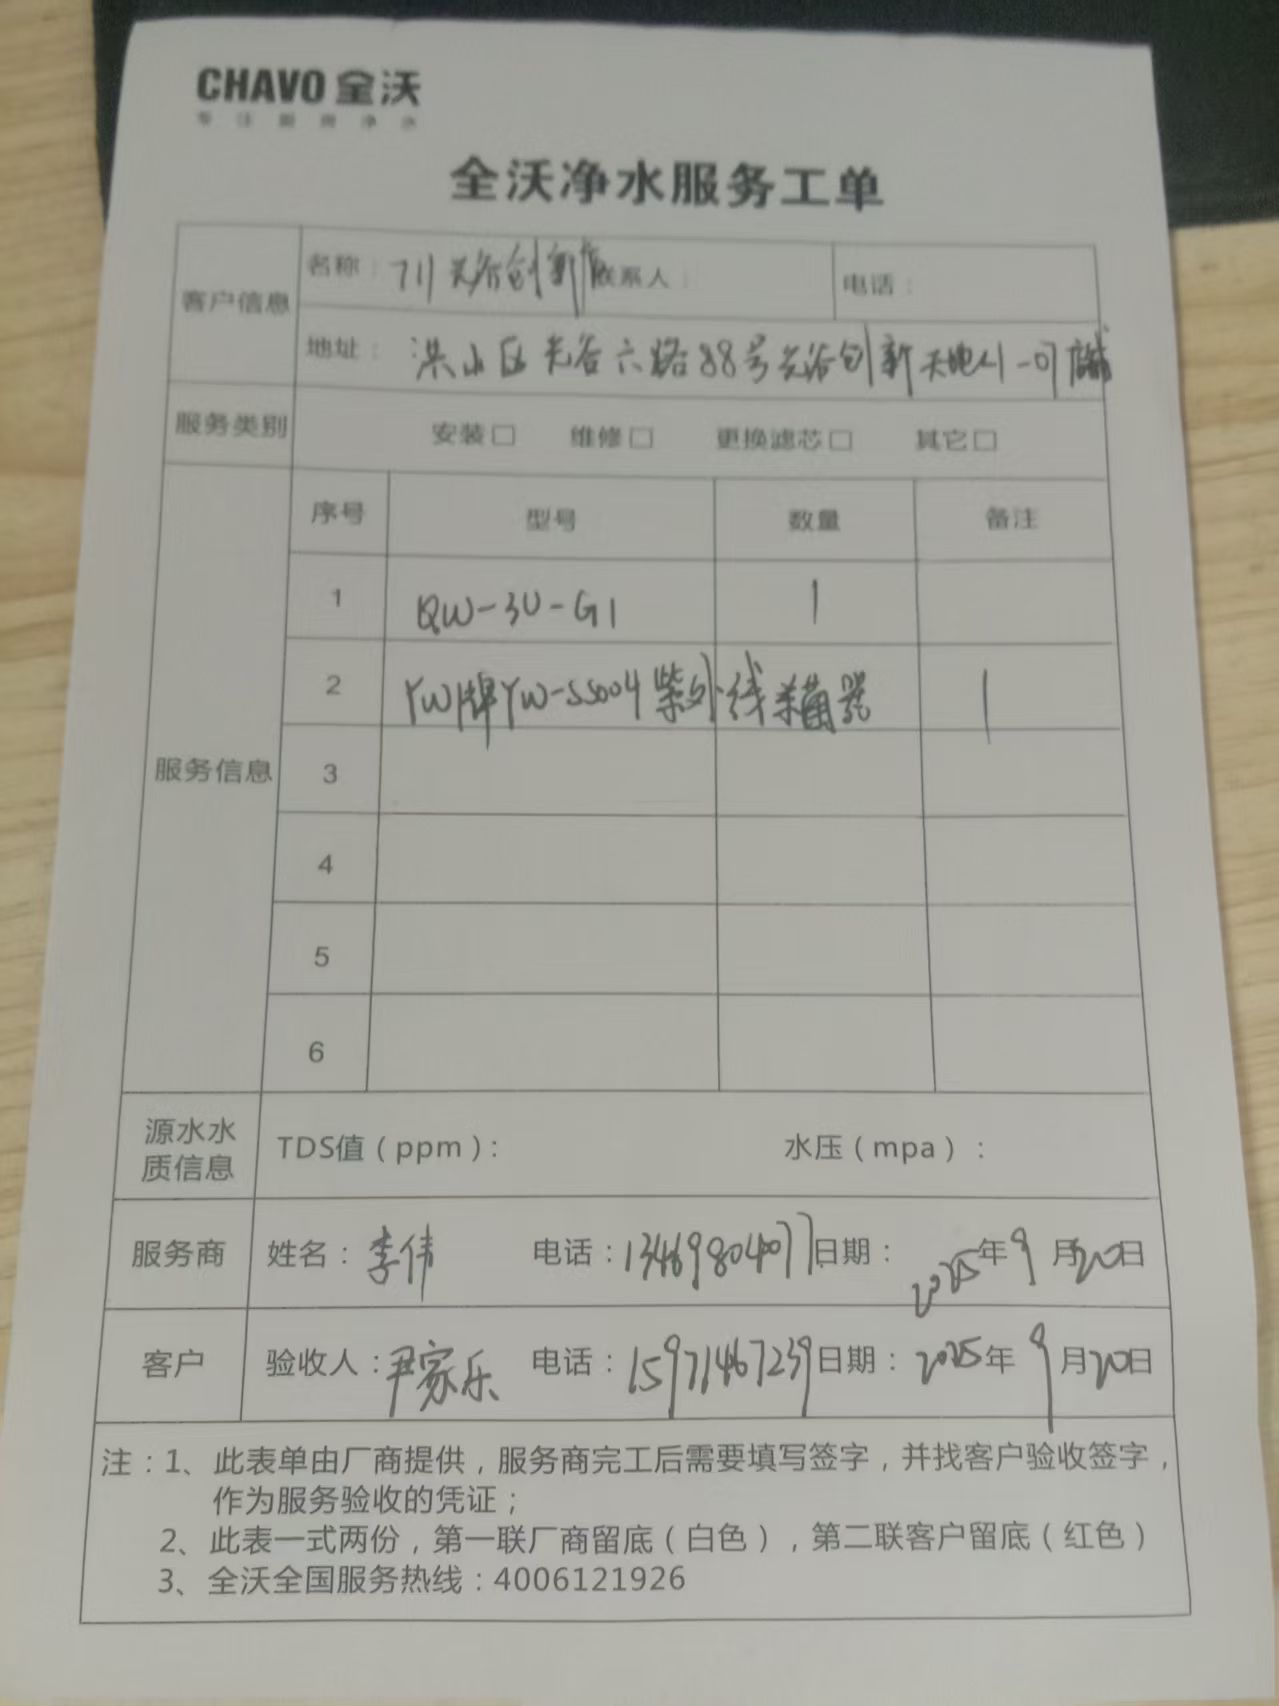 CHAVO 全沃
专注厨房净水
全沃净水服务工单
客户信息
名称：711光谷创新店 联系人： 电话：
地址：洪山区光谷六路88号光谷创新天地
服务类别 安装□ 维修□ 更换滤芯□ 其它□
服务信息
序号 型号 数量 备注
1 QW-3U-G1 1
2 YW牌YW-SS004紫外线杀菌器 1
3
4
5
6
源水水质信息 TDS值（ppm）： 水压（mpa）：
服务商 姓名：李伟 电话：13469804077 日期：2025年9月20日
客户 验收人：尹家乐 电话：15971467239 日期：2025年9月20日
注：1、此表单由厂商提供，服务商完工后需要填写签字，并找客户验收签字，
作为服务验收的凭证；
2、此表一式两份，第一联厂商留底（白色），第二联客户留底（红色）
3、全沃全国服务热线：4006121926